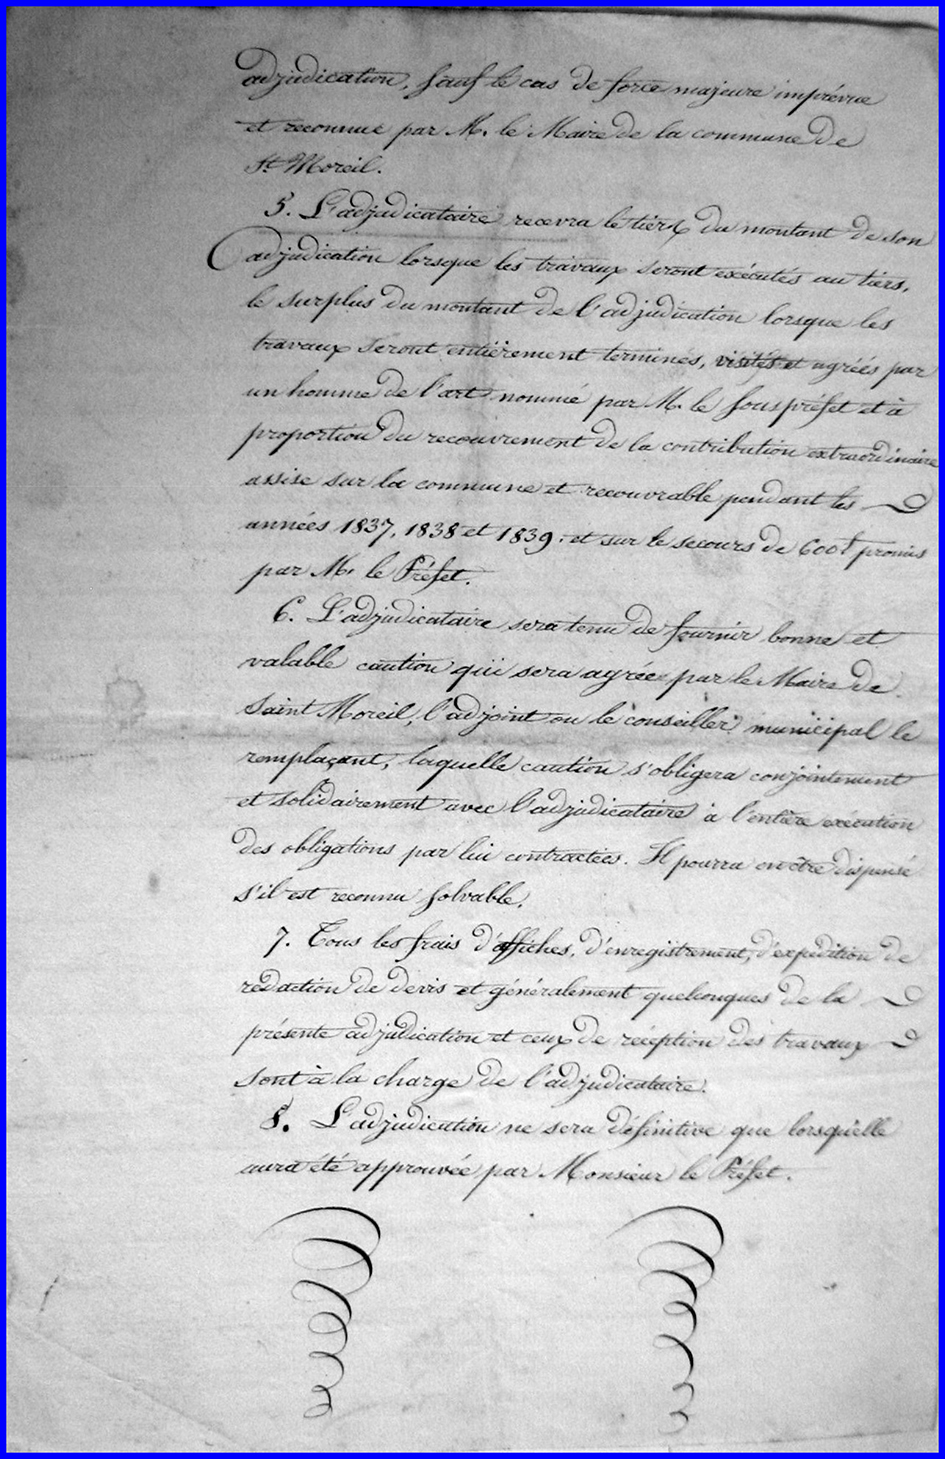 adjudication, sauf le cas de force majeure imprévue
et reconnue par M. le Maire de la commune de
St Moreil.
5. L'adjudicataire recevra le tiers du montant de son
adjudication lorsque les travaux seront exécutés au tiers,
le surplus du montant de l'adjudication lorsque les
travaux seront entièrement terminés, visités et agréés par
un homme de l'art nommé par M. le Sous préfet et à
proportion du recouvrement de la contribution extraordinaire
assise sur la commune et recouvrable pendant les
années 1837, 1838 et 1839. et sur le secours de 600f promis
par M. le Préfet.
6. L'adjudicataire sera tenu de fournir bonne et
valable caution qui sera agréée par le Maire de
Saint Moreil, l'adjoint ou le conseiller municipal le
remplaçant, laquelle caution s'obligera conjointement
et solidairement avec l'adjudicataire à l'entière exécution
des obligations par lui contractées. Il pourra en être dispensé
s'il est reconnu solvable.
7. Tous les frais d'affiches, d'enregistrement, d'expédition de
rédaction de devis et généralement quelconques de la
présente adjudication et ceux de réception des travaux
sont à la charge de l'adjudicataire.
8. L'adjudication ne sera définitive que lorsqu'elle
aura été approuvée par Monsieur le Préfet.